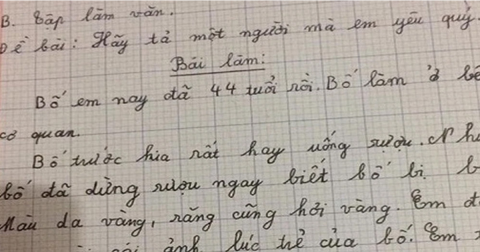 B. Tập làm văn.
Đề bài: Hãy tả một người mà em yêu quý.
Bài làm:
Bố em nay đã 44 tuổi rồi. Bố làm ở bê
cơ quan.
Bố trước kia rất hay uống rượu. Nh
bố đã dừng rượu ngay biết bố bị b
Màu da vàng, răng cũng hơi vàng. Em đ
ảnh lúc trẻ của bố. Em